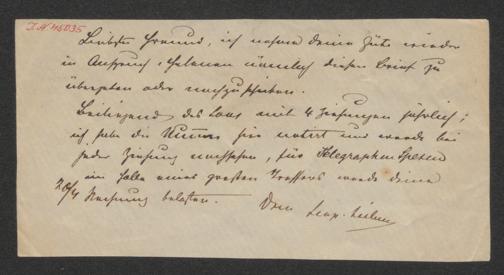 I.N. 45035
Liebster Freund, ich nehme deine Güte wieder
in Anspruch, nämlich diesen Brief zu
übergeben oder nachzuschicken.
Beiliegend das Loos mit 4 Ziehungen jährlich;
ich habe die hier notirt und werde bei
jeder Ziehung nachsehen, für Telegraphen Spesen
im Falle eines großen Treffers werde deine
Rechnung belasten. Dein